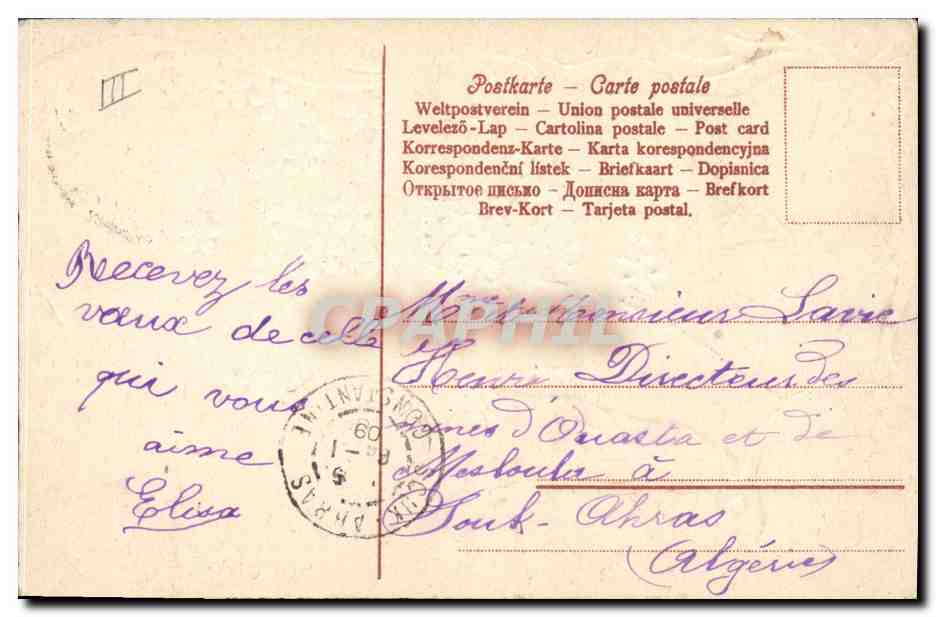 III
Postkarte – Carte postale
Weltpostverein – Union postale universelle
Levelező-Lap – Cartolina postale – Post card
Korrespondenz-Karte – Karta korespondencyjna
Korespondenční lístek – Briefkaart – Dopisnica
Открытое письмо – Дописна карта – Brefkort
Brev-Kort – Tarjeta postal.
Recevez les
vœux de celle
qui vous
aime
Elisa
CPAPHIL
Monsieur Lavie
Henri Directeur des
mines d'Ouasta et de
Mesloula à
Souk-Ahras
(Algérie)
SOUK-AHRAS
CONSTANTINE
5 -1
09